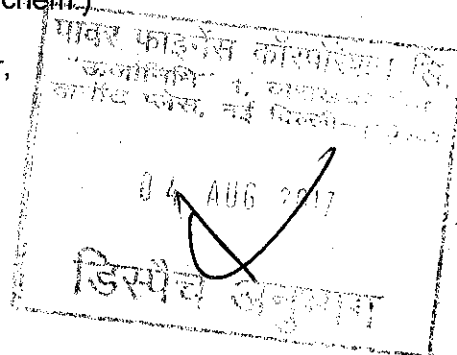 chem.)
पावर फाइनेंस कॉरपोरेशन लि.
"ऊर्जानिधि" 1,
प्लेस, नई दिल्ली
04 AUG 2017
डिस्पैच अनुभाग